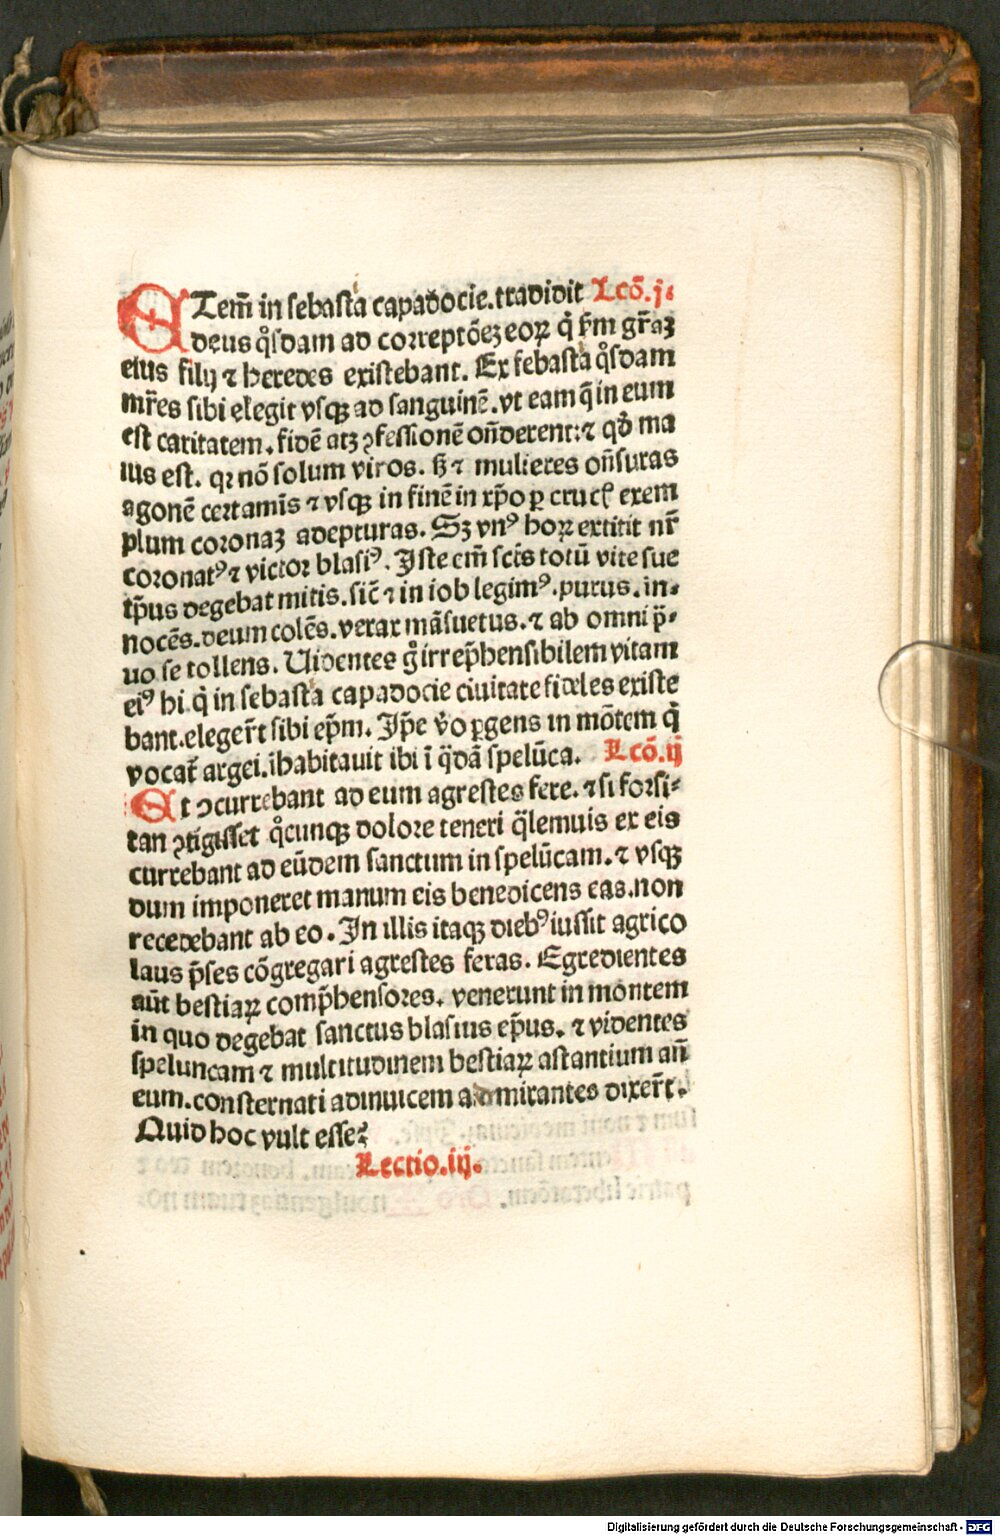 ETem̃ in sebasta capadocie.tradidit Lcõ.j.
deus q̊sdam ad correptõeꝫ eoꝝ q̇ s̃m gr̃aꝫ
eius filij ⁊ heredes existebant. Ex sebasta q̊sdam
mr̃es sibi elegit vsqꝫ ad sanguinẽ.vt eam q̃ in eum
est caritatem.fidẽ atꝫ ꝯfessionẽ on̄derent:⁊ qđ ma
ius est. qꝛ nõ solum viros. sꝫ ⁊ mulieres on̄suras
agonẽ certamĩs ⁊ vsqꝫ in finẽ in xp̃o ꝑ crucꝭ exem
plum coronaꝫ adepturas. Sꝫ vnꝰ hoꝝ extitit nr̃
coronatꝰ ⁊ victor blasiꝰ. Iste em̃ scĩs totũ vite sue
tp̃us degebat mitis.sic̃ ⁊ in iob legimꝰ.purus.in-
nocẽs.deum colẽs.verax mãsuetus.⁊ ab omni p̃-
uo se tollens. Uidentes g̊ irrep̃hensibilem vitam
eiꝰ hi q̇ in sebasta capadocie ciuitate fideles existe
bant.eleger̃t sibi ep̃m. Ip̃e v̊o ꝑgens in mõtem q̇
vocat̃ argei.ĩhabitauit ibi ĩ q̃dã spelũca. Lcõ.ij
Et ꝯcurrebant ad eum agrestes fere.⁊ si forsi-
tan ꝯtigisset q̊cunqꝫ dolore teneri q̃lemuis ex eis
currebant ad eũdem sanctum in spelũcam.⁊ vsqꝫ
dum imponeret manum eis benedicens eas.non
recedebant ab eo. In illis itaqꝫ diebꝰ iussit agrico
laus p̃ses cõgregari agrestes feras. Egredientes
aũt bestiaꝝ comp̃hensores. venerunt in montem
in quo degebat sanctus blasius ep̃us. ⁊ videntes
speluncam ⁊ multitudinem bestiaꝝ astantium añ
eum.consternati adinuicem admirantes dixer̃t.
Quid hoc vult esse?
Lectio.iij.
Digitalisierung gefördert durch die Deutsche Forschungsgemeinschaft - DFG